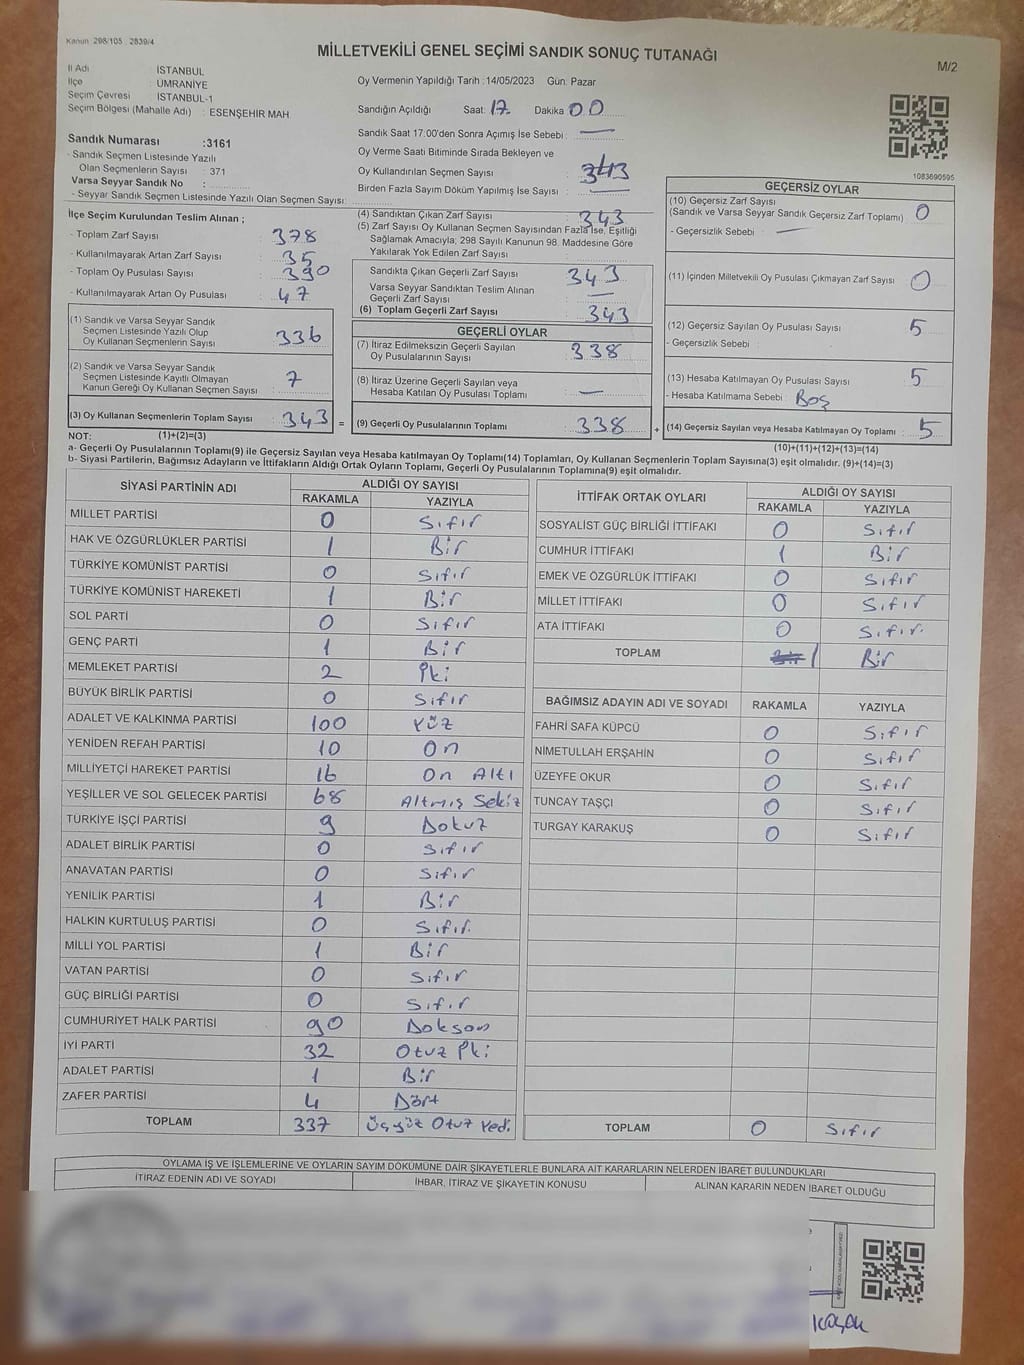 Kanun 298/105 2839/4
MİLLETVEKİLİ GENEL SEÇİMİ SANDIK SONUÇ TUTANAĞI
M/2
İl Adı : İSTANBUL
İlçe : ÜMRANİYE
Seçim Çevresi : İSTANBUL-1
Seçim Bölgesi (Mahalle Adı) : ESENŞEHİR MAH.
Oy Vermenin Yapıldığı Tarih : 14/05/2023 Gün: Pazar
Sandığın Açıldığı Saat: 17 Dakika 00
Sandık Saat 17:00'den Sonra Açımış İse Sebebi : —
Oy Verme Saati Bitiminde Sırada Bekleyen ve
Oy Kullandırılan Seçmen Sayısı : 343
Birden Fazla Sayım Döküm Yapılmış İse Sayısı : —
Sandık Numarası :3161
- Sandık Seçmen Listesinde Yazılı
Olan Seçmenlerin Sayısı : 371
Varsa Seyyar Sandık No :
- Seyyar Sandık Seçmen Listesinde Yazılı Olan Seçmen Sayısı:
1083690595
İlçe Seçim Kurulundan Teslim Alınan ;
- Toplam Zarf Sayısı : 378
- Kullanılmayarak Artan Zarf Sayısı : 35
- Toplam Oy Pusulası Sayısı : 390
- Kullanılmayarak Artan Oy Pusulası : 47
(1) Sandık ve Varsa Seyyar Sandık
Seçmen Listesinde Yazılı Olup
Oy Kullanan Seçmenlerin Sayısı : 336
(2) Sandık ve Varsa Seyyar Sandık
Seçmen Listesinde Kayıtlı Olmayan
Kanun Gereği Oy Kullanan Seçmen Sayısı : 7
(3) Oy Kullanan Seçmenlerin Toplam Sayısı : 343 =
(4) Sandıktan Çıkan Zarf Sayısı : 343
(5) Zarf Sayısı Oy Kullanan Seçmen Sayısından Fazla İse, Eşitliği
Sağlamak Amacıyla; 298 Sayılı Kanunun 98. Maddesine Göre
Yakılarak Yok Edilen Zarf Sayısı :
Sandıkta Çıkan Geçerli Zarf Sayısı : 343
Varsa Seyyar Sandıktan Teslim Alınan
Geçerli Zarf Sayısı : —
(6) Toplam Geçerli Zarf Sayısı : 343
GEÇERLİ OYLAR
(7) İtiraz Edilmeksizin Geçerli Sayılan
Oy Pusulalarının Sayısı : 338
(8) İtiraz Üzerine Geçerli Sayılan veya
Hesaba Katılan Oy Pusulası Toplamı : —
(9) Geçerli Oy Pusulalarının Toplamı : 338 +
GEÇERSİZ OYLAR
(10) Geçersiz Zarf Sayısı
(Sandık ve Varsa Seyyar Sandık Geçersiz Zarf Toplamı) : 0
- Geçersizlik Sebebi : —
(11) İçinden Milletvekili Oy Pusulası Çıkmayan Zarf Sayısı : 0
(12) Geçersiz Sayılan Oy Pusulası Sayısı : 5
- Geçersizlik Sebebi :
(13) Hesaba Katılmayan Oy Pusulası Sayısı : 5
- Hesaba Katılmama Sebebi : Boş
(14) Geçersiz Sayılan veya Hesaba Katılmayan Oy Toplamı : 5
NOT: (1)+(2)=(3)
(10)+(11)+(12)+(13)=(14)
a- Geçerli Oy Pusulalarının Toplamı(9) ile Geçersiz Sayılan veya Hesaba Katılmayan Oy Toplamı(14) Toplamları, Oy Kullanan Seçmenlerin Toplam Sayısına(3) eşit olmalıdır. (9)+(14)=(3)
b- Siyasi Partilerin, Bağımsız Adayların ve İttifakların Aldığı Ortak Oyların Toplamı, Geçerli Oy Pusulalarının Toplamına(9) eşit olmalıdır.
SİYASİ PARTİNİN ADI
ALDIĞI OY SAYISI
RAKAMLA YAZIYLA
MİLLET PARTİSİ 0 Sıfır
HAK VE ÖZGÜRLÜKLER PARTİSİ 1 Bir
TÜRKİYE KOMÜNİST PARTİSİ 0 Sıfır
TÜRKİYE KOMÜNİST HAREKETİ 1 Bir
SOL PARTİ 0 Sıfır
GENÇ PARTİ 1 Bir
MEMLEKET PARTİSİ 2 İki
BÜYÜK BİRLİK PARTİSİ 0 Sıfır
ADALET VE KALKINMA PARTİSİ 100 Yüz
YENİDEN REFAH PARTİSİ 10 On
MİLLİYETÇİ HAREKET PARTİSİ 16 On Altı
YEŞİLLER VE SOL GELECEK PARTİSİ 68 Altmış Sekiz
TÜRKİYE İŞÇİ PARTİSİ 9 Dokuz
ADALET BİRLİK PARTİSİ 0 Sıfır
ANAVATAN PARTİSİ 0 Sıfır
YENİLİK PARTİSİ 1 Bir
HALKIN KURTULUŞ PARTİSİ 0 Sıfır
MİLLİ YOL PARTİSİ 1 Bir
VATAN PARTİSİ 0 Sıfır
GÜÇ BİRLİĞİ PARTİSİ 0 Sıfır
CUMHURİYET HALK PARTİSİ 90 Doksan
İYİ PARTİ 32 Otuz İki
ADALET PARTİSİ 1 Bir
ZAFER PARTİSİ 4 Dört
TOPLAM 337 Üçyüz Otuz Yedi
İTTİFAK ORTAK OYLARI
ALDIĞI OY SAYISI
RAKAMLA YAZIYLA
SOSYALİST GÜÇ BİRLİĞİ İTTİFAKI 0 Sıfır
CUMHUR İTTİFAKI 1 Bir
EMEK VE ÖZGÜRLÜK İTTİFAKI 0 Sıfır
MİLLET İTTİFAKI 0 Sıfır
ATA İTTİFAKI 0 Sıfır
TOPLAM 1 Bir
BAĞIMSIZ ADAYIN ADI VE SOYADI RAKAMLA YAZIYLA
FAHRİ SAFA KÜPCÜ 0 Sıfır
NİMETULLAH ERŞAHİN 0 Sıfır
ÜZEYFE OKUR 0 Sıfır
TUNCAY TAŞÇI 0 Sıfır
TURGAY KARAKUŞ 0 Sıfır
TOPLAM 0 Sıfır
OYLAMA İŞ VE İŞLEMLERİNE VE OYLARIN SAYIM DÖKÜMÜNE DAİR ŞİKAYETLERLE BUNLARA AİT KARARLARIN NELERDEN İBARET BULUNDUKLARI
İTİRAZ EDENİN ADI VE SOYADI İHBAR, İTİRAZ VE ŞİKAYETİN KONUSU ALINAN KARARIN NEDEN İBARET OLDUĞU